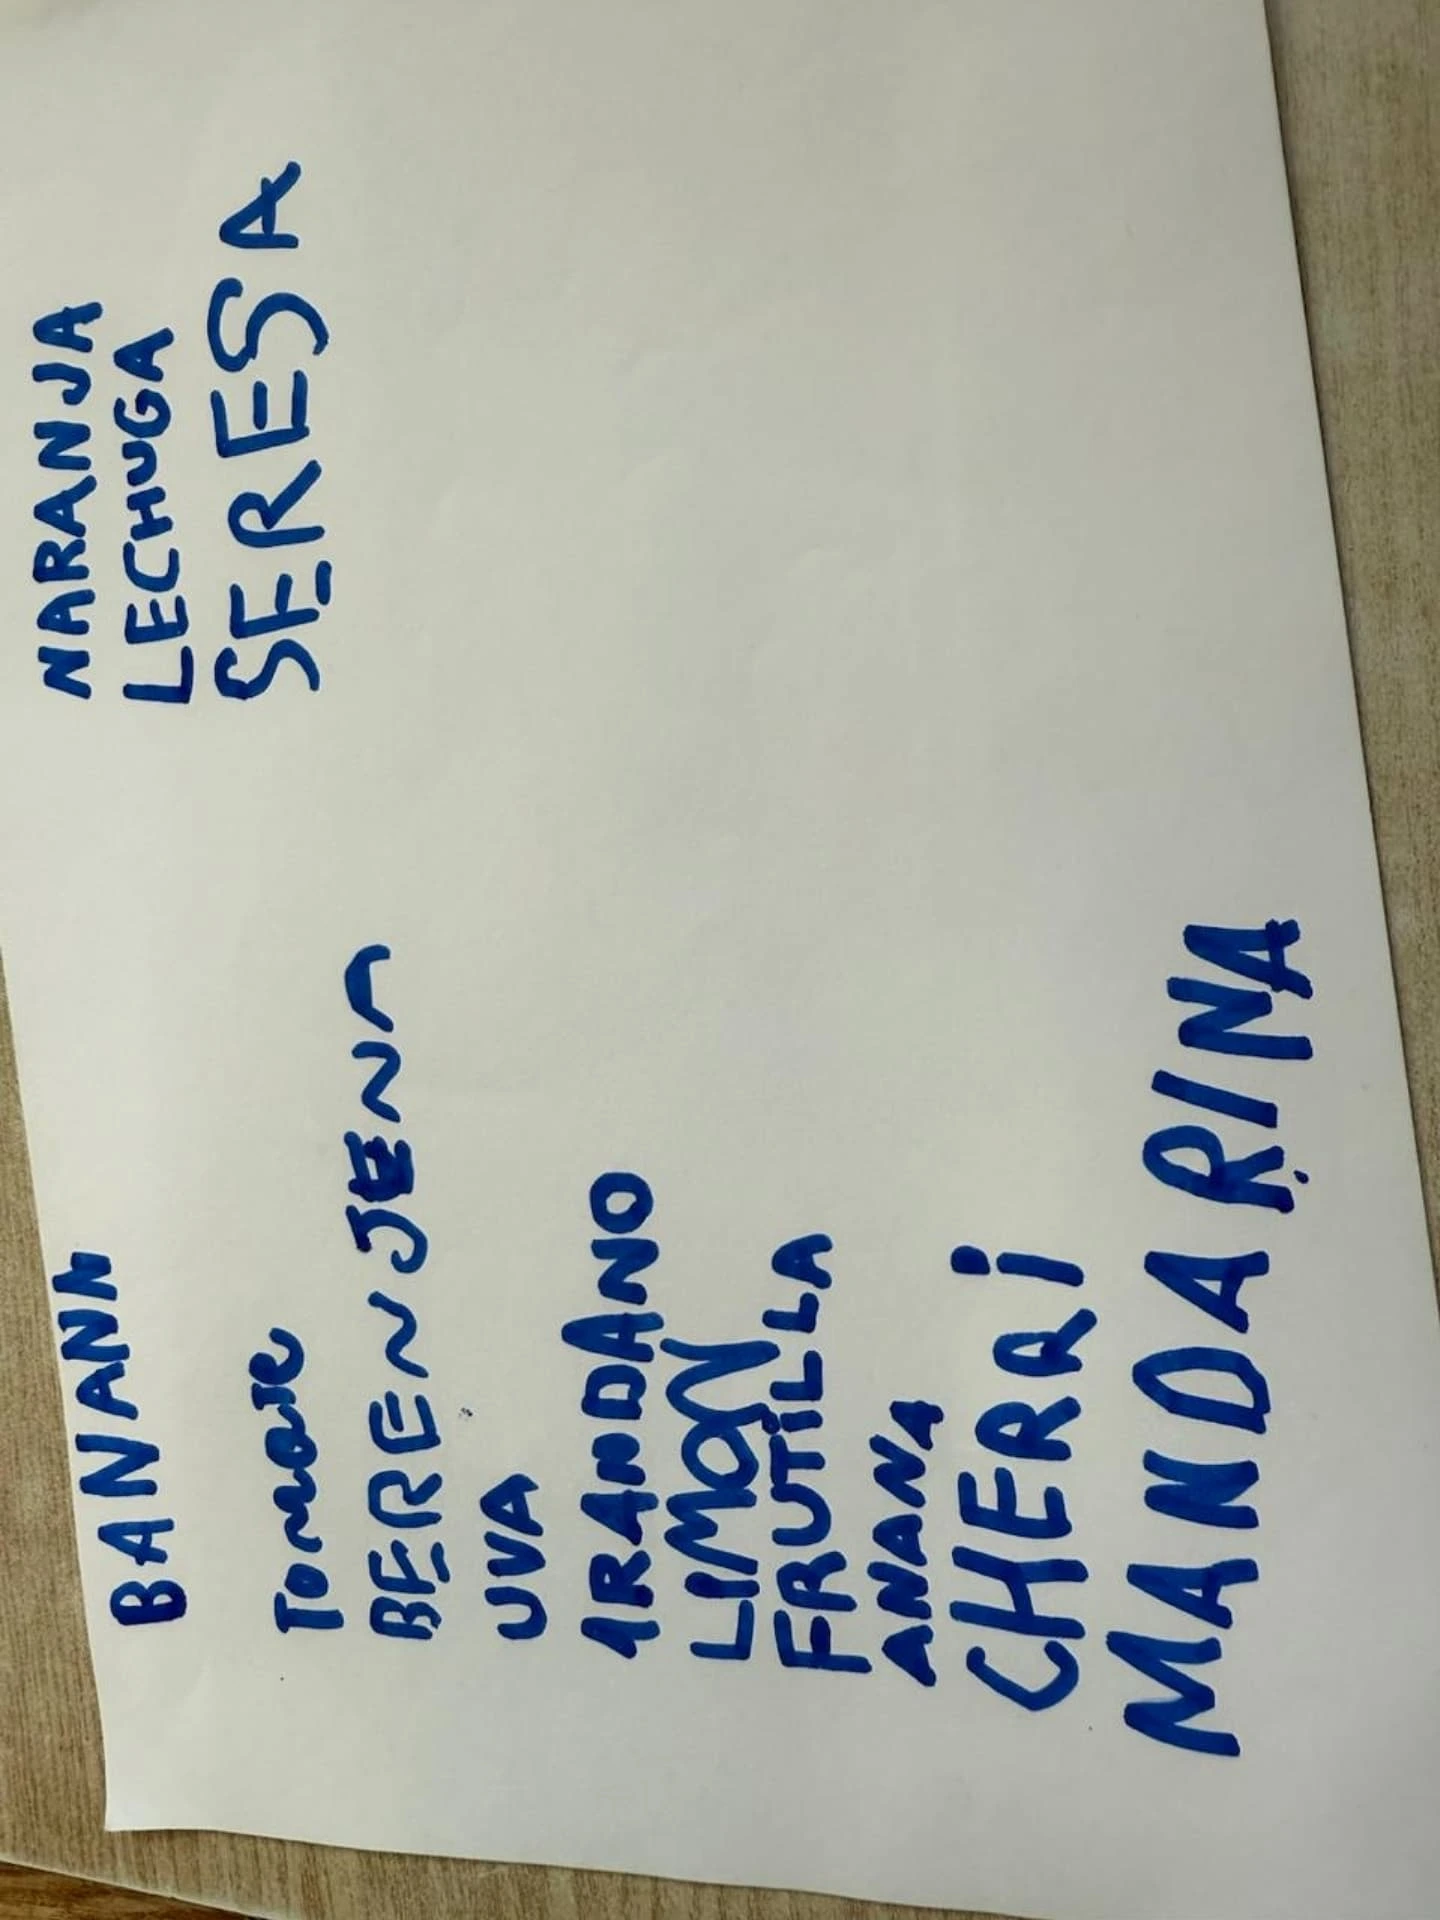 BANANA
Tomate
BERENJENA
UVA
ARANDANO
LIMON
FRUTILLA
ANANA
CHERRi
MANDARINA
NARANJA
LECHUGA
SERESA